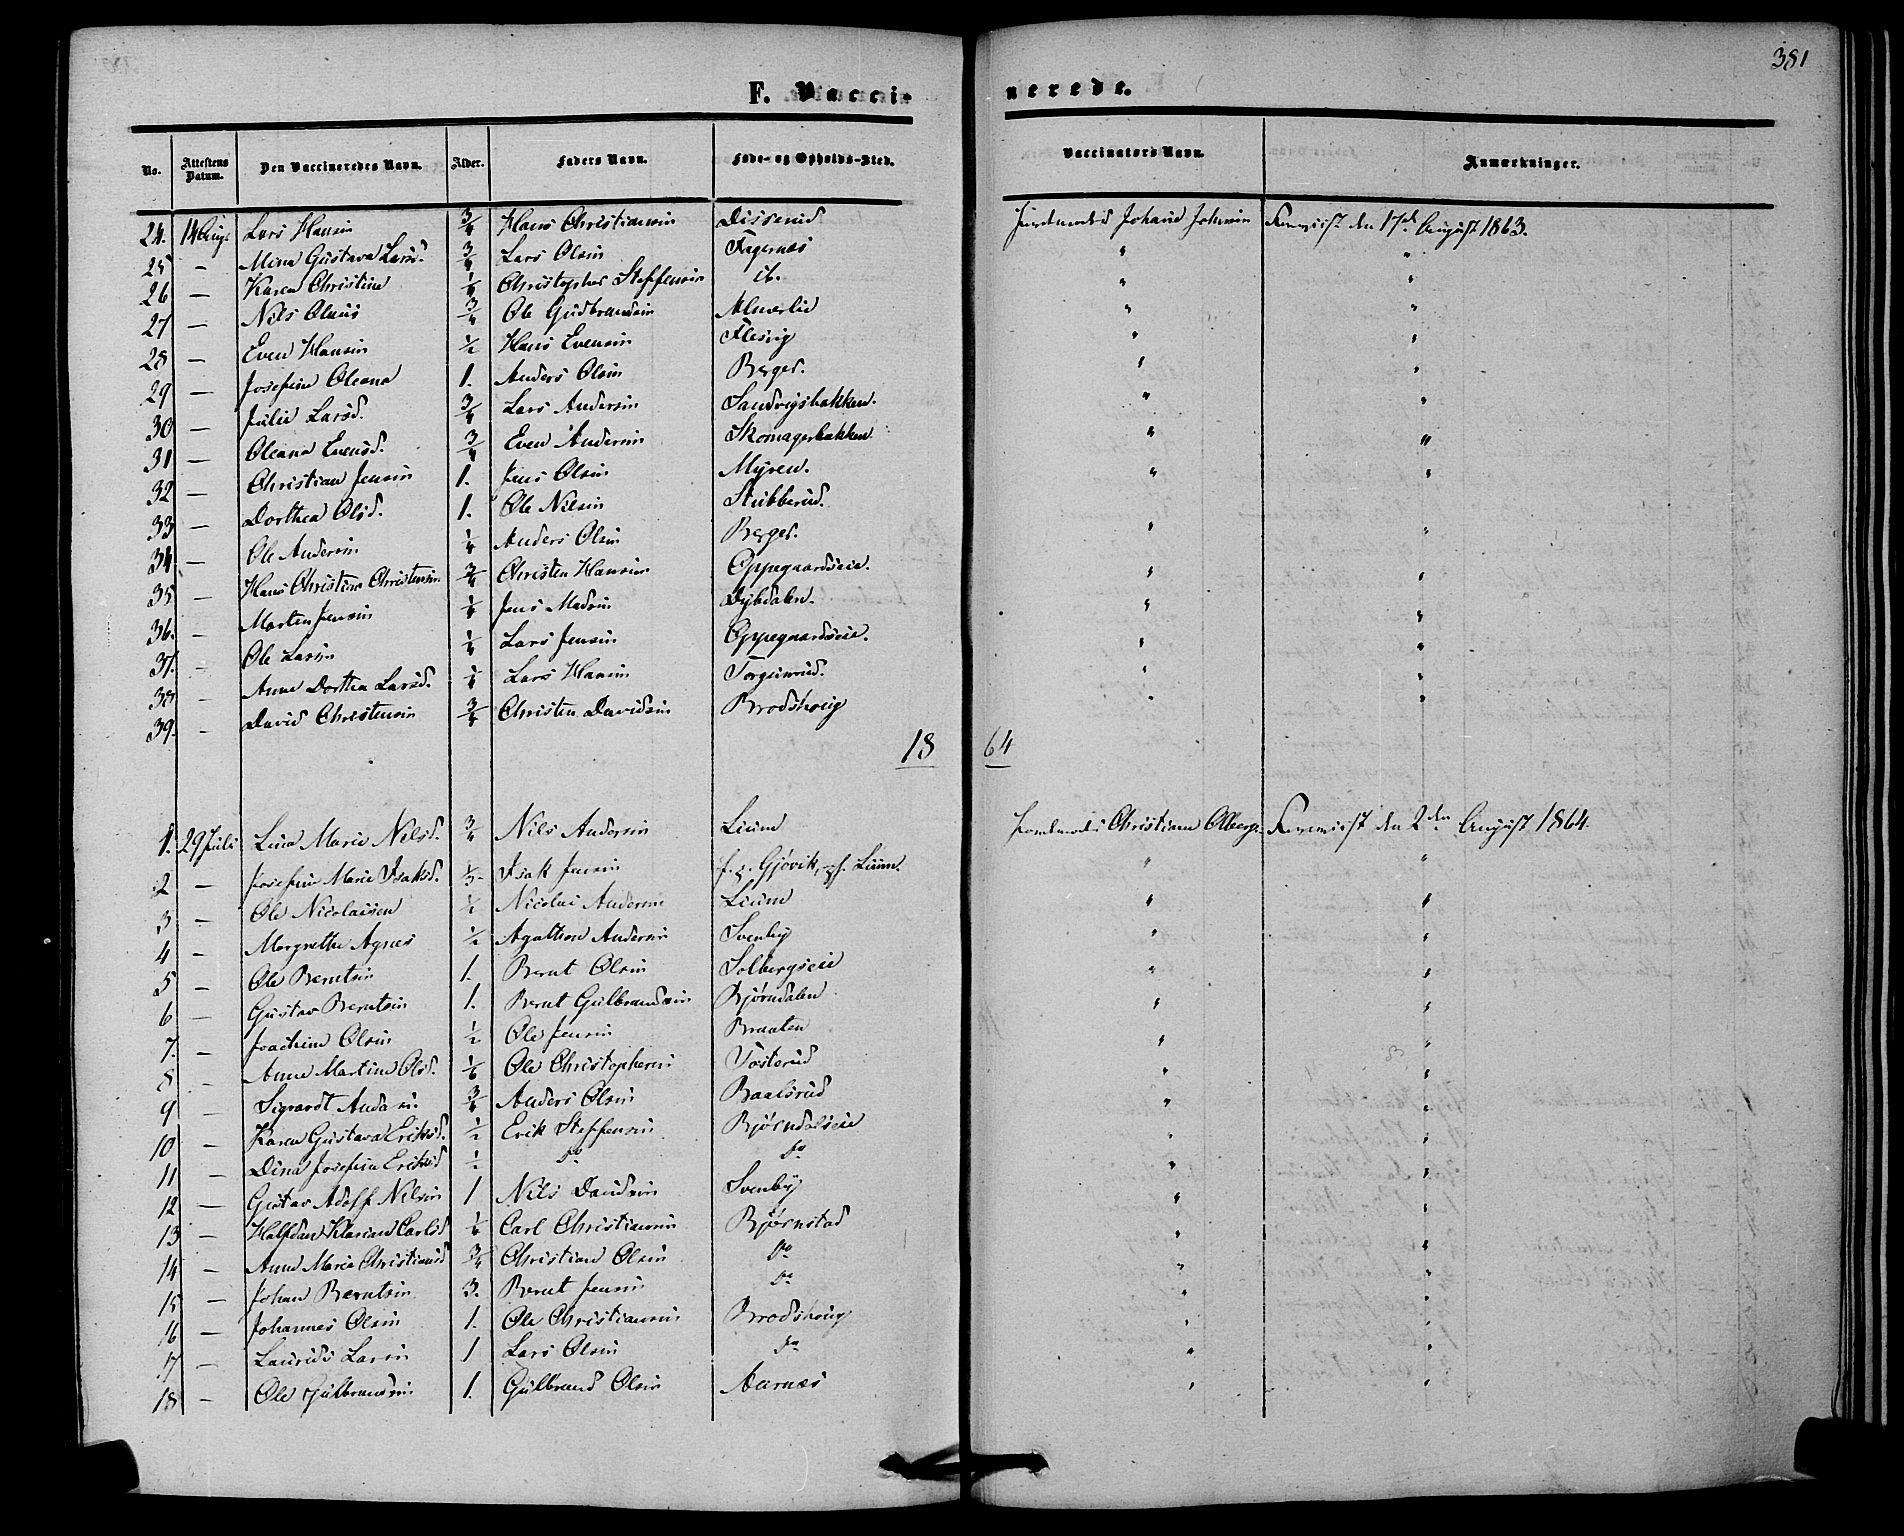 381
F. Vaccinerede.
No. Attestens Datum. Den Vaccineredes Navn. Alder. Faders Navn. Føde- og Opholds-Sted. Vaccinatørs Navn. Anmærkninger.
24. 14 Aug. Lars Hansen 3/4 Hans Christiansen Disserud Johanne Johnsen den 17de August 1863.
25 — Mina Gustava Larsd. 3/4 Lars Olsen Fagernæs " "
26 — Karen Christine Christopher Steffensen " "
27 — Nils Olaus 3/4 Ole Gudbrandsen " "
28 — Even Hansen 1/2 Hans Evensen Flesvig " "
29 — Josefine Oleana 1. Anders Olsen Berger. " "
30 — Julie Larsd. 3/4 Lars Andersen Sandvigsbakken. " "
31 — Oleana Evensd. 3/4 Even Andersen Skomagerbakken " "
32 — Christian Jensen 1. Jens Olsen Myren. " "
33 — Dorthea Olsd. 1. Ole Nilsen Stubberud.
34 — Ole Andersen 1/4 Anders Olsen Berger. " "
35 — Hans Christian Christensen 3/4 Christen Hansen Oppegaardseie. " "
36. — Morten Jensen 1/4 Jens Madsen Dybdalen. " "
37. - Ole Larsen 1/4 Lars Jensen Oppegaardseie. " "
38 - Anne Dorthea Larsd. 1/4 Lars Hansen Torgiersrud. " "
39. - David Christensen 3/4 Christen Davidsen Brodshoug " "
1864
1. 29 Juli Lina Marie Nilsd. 3/4 Nils Andersen Lium Christiane Alberg den 2den August 1864.
2 — Josefine Marie Isaksd. 1/3 Isak Jensen Gjøvik, Lium. " "
3 — Ole Nicolaisen 1/2 Nicolai Andersen Lium " "
4 - Margrethe Agnes 1/2 Agathon Andersen Svenby " "
5 - Ole Berntsen 1. Bernt Olsen Solbergseie " "
6 - Gustav Berntsen 1. Bernt Gulbrandsen Bjørndalen " "
7. - Joachim Olsen 1/2 Ole Jensen Braaten " "
8 - Anne Martine Olsd. 1/6 Ole Christophersen Tosterud " "
9 - Sigvardt Andersen 3/4 Anders Olsen Baalsrud " "
10 — Karen Gustava Eriksd. 1/2 Erik Steffensen Bjørndalseie " "
11 — Dina Josefine Eriksd 1/2 do do " "
12 — Gustav Adolf Nilsen 1 Nils Davidsen Svenby " "
13 — Halfdan Klarius Carlsd 1/4 Carl Christiansen Bjørnstad " "
14 — Anne Marie Christiansd 3/4 Christian Olsen do " "
15 — Johan Berntsen 3. Bernt Jensen do " "
16 — Johannes Olsen 1. Ole Christiansen Brodshoug " "
17 — Laurids Larsen 1 Lars Olsen do " "
18 — Ole Gulbrandsen 1. Gulbrand Olsen Aarnæs " "